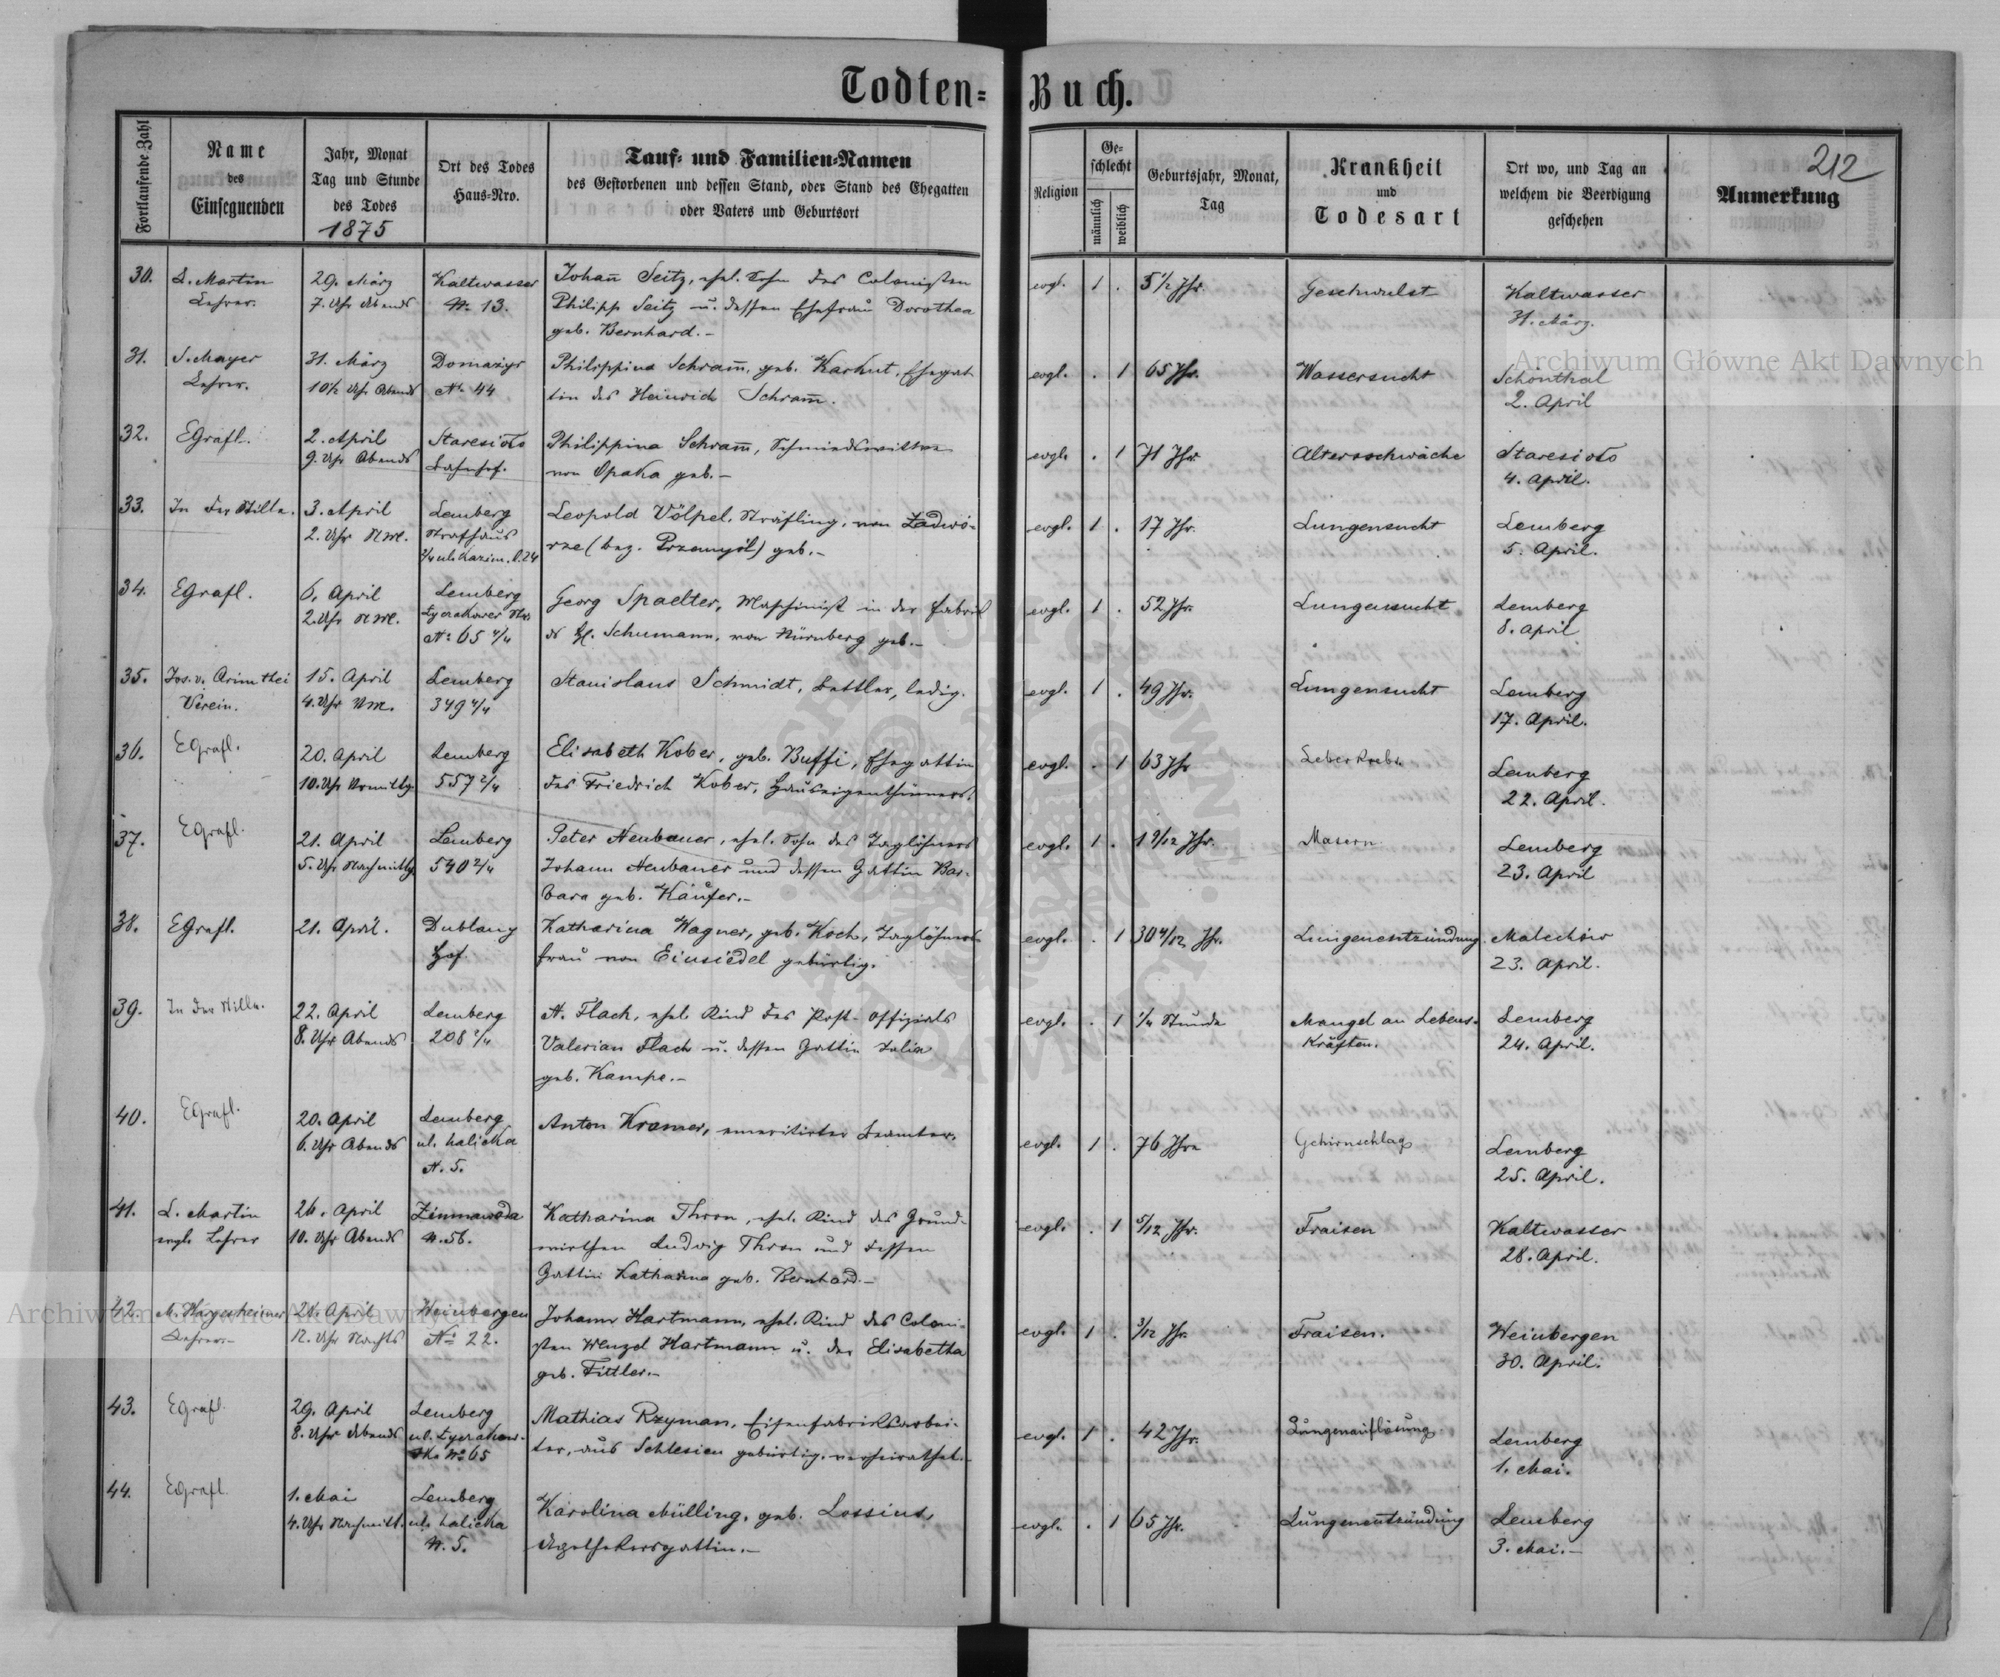 Todten-Buch.
212
Fortlaufende Zahl
Name
des
Einsegnenden
Jahr, Monat
Tag und Stunde
des Todes
1875
Ort des Todes
Haus-Nro.
Tauf- und Familien-Namen
des Gestorbenen und dessen Stand, oder Stand des Ehegatten
oder Vaters und Geburtsort
Religion
Ge-
schlecht
männlich
weiblich
Geburtsjahr, Monat,
Tag
Krankheit
und
Todesart
Ort wo, und Tag an
welchem die Beerdigung
geschehen
Anmerkung
30.
L. Martin
Lehrer.
29. März
7. Uhr Abends
Kaltwasser
N. 13.
Johan̄ Seitz, ehel. Sohn des Colonisten
Philipp Seitz u. dessen Ehefrau Dorothea
geb. Bernhard.-
evgl.
1
.
5½ Jhr.
Geschwulst
Kaltwasser
31. März.
31.
J. Mayer
Lehrer.
31. März
10½ Uhr Abends
Domażyr
No 44
Philippina Schram̄, geb. Karkut, Ehegat
tin des Heinrich Schram̄.
evgl.
.
1
65 Jhr.
Wassersucht
Schönthal
2. April
32.
EGrafl.
2. April
9. Uhr Abends
Staresioło
Bahnhof.
Philippina Schram̄, Schmiedswittwe
von Opaka geb.-
evgl.
.
1
71 Jhr.
Altersschwäche
Staresioło
4. April.
33.
In der Stille.
3. April
2. Uhr NM.
Lemberg
Strafhaus
2/4 ul. Kazim. l. 24
Leopold Völpel, Sträfling, von Zadwó-
rze (bez. Przemyśl) geb.-
evgl.
1
.
17 Jhr.
Lungensucht
Lemberg
5. April.
34.
EGrafl.
6. April
2. Uhr NM.
Lemberg
Łyczakower Str.
No 65 4/4
Georg Spaelter, Maschinist in der Fabrik
d. H. Schumann, von Nürnberg geb.-
evgl.
1
.
52 Jhr.
Lungensucht
Lemberg
8. April
35.
Jos. v. Arimathei
Verein.
15. April
4. Uhr NM.
Lemberg
349 4/4
Stanislaus Schmidt, Bettler, ledig.
evgl.
1
.
49 Jhr.
Lungensucht
Lemberg
17. April.
36.
EGrafl.
20. April
10. Uhr Vormittg.
Lemberg
557 2/4
Elisabeth Kober, geb. Buffi, Ehegattin
des Friedrich Kober, Hauseigenthümers.
evgl.
.
1
63 Jhr
Leberkrebs
Lemberg
22. April.
37.
EGrafl.
21. April
5. Uhr Nachmittg.
Lemberg
540 2/4
Peter Neubauer, ehel. Sohn des Taglöhners
Johann Neubauer und dessen Gattin Bar-
bara geb. Käufer.-
evgl.
1
.
1 9/12 Jhr.
Masern
Lemberg
23. April
38.
EGrafl.
21. April.
Dublany
Hof
Katharina Wagner, geb. Koch, Taglöhners
frau von Einsiedel gebürtig.
evgl.
.
1
30 4/12 Jhr.
Lungenentzündung.
Malechów
23. April.
39.
In der Stille.
22. April
8. Uhr Abends
Lemberg
208 2/4
N. Flach, ehel. Kind des Post-Offizials
Valerian Flach u. dessen Gattin Julia
geb. Kampe.-
evgl.
.
1
¼ Stunde
Mangel an Lebens-
kräften.
Lemberg
24. April.
40.
EGrafl.
20. April
6. Uhr Abends
Lemberg
ul. halicka
N. 5.
Anton Kramer, emeritirter Beamter.
evgl.
1
.
76 Jhre
Gehirnschlag
Lemberg
25. April.
41.
L. Martin
evgl. Lehrer
26. April
10. Uhr Abends
Zimnawoda
N. 56.
Katharina Thron, ehel. Kind des Grund-
wirthen Ludwig Thron und dessen
Gattin Katharina geb. Bernhard.-
evgl.
.
1
5/12 Jhr.
Fraisen
Kaltwasser
28. April.
42.
M. Hargesheimer
Lehrer.-
28. April
12. Uhr Nachts
Weinbergen
No 22.
Johann Hartmann, ehel. Kind des Coloni-
sten Wenzel Hartmann u. der Elisabetha
geb. Fittler.-
evgl.
1
.
3/12 Jhr.
Fraisen.
Weinbergen
30. April.
43.
EGrafl.
29. April
8. Uhr Abends
Lemberg
ul. Łyczakow-
ska No 65
Mathias Rzyman, Eisenfabriksarbei-
ter, aus Schlesien gebürtig, verheirathet.-
evgl.
1
.
42 Jhr.
Lungenauflösung
Lemberg
1. Mai.
44.
EGrafl.
1. Mai
4. Uhr Nachmitt.
Lemberg
ul. halicka
N. 5.
Karolina Mülling, geb. Lossius,
Apothekersgattin.-
evgl.
.
1
65 Jhr.
Lungenentzündung
Lemberg
3. Mai.-
Archiwum Główne Akt Dawnych
Archiwum Główne Akt Dawnych